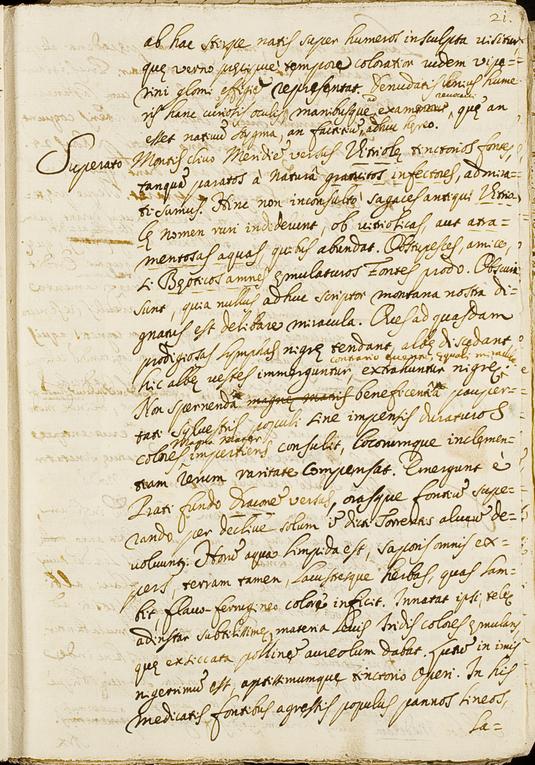 21.
ab hac stirpe natis super humeros insculpta visitur
quę verno
tempore coloratior
vipe=
rini glomi effigie repręsentat. Denudatis
hume
ris hanc curiosis oculis, manibusque
quę an
esset nativu stygma, an factitiu, adhuc hęreo.
Superato Montis clivo Meridie versus Vitriolę tinctorios fontes,
tanqua paratos à natura gratuitos infectores, admira=
ti sumus. Hinc non inconsulto sagaces antiqui Vitrio
lę nomen ruri indiderunt, ob vitriolicas, aut atra=
mentosas aquas, quibus abundat. Obstupesces amice,
si Bęoticos amnes ęmulaturos Fontes prodo. Obscuri
sunt, quia nullus adhuc scriptor montana nostra di=
gnatus est delibare miracula. Oves ad quasdam
prodigiosas lymphas nigrę tendant, albę discedant
contrario
miraculo
hic albę vestes immerguntur, extrahuntur nigrę.
Non spernenda magnę matris beneficentia pauper=
tati sylvestris populi sine impensis duraturos
Magna mater
colores impertiens consulit, locorumque inclemen=
tiam rerum raritate compensat. Emergunt è
Prati fundo
versus, orasque fontiu supe=
rando per declive solum
Torrentis alveu de=
volvunt. Horu aqua limpida est, saporis omnis ex=
pers, terram tamen, lacustresque herbas, quas lam=
bit flavo ferrugineo colore inficit. Innatat ipsi telę
adinstar subtilissimę materia levis Iridis colores ęmulans
quę exsiccata polline aureolum dabat. Lutu in imis
nigerrimu est, aptissimumque tinctorio operi. In his
medicatis fontibus agrestis populus pannos lineos,
la=